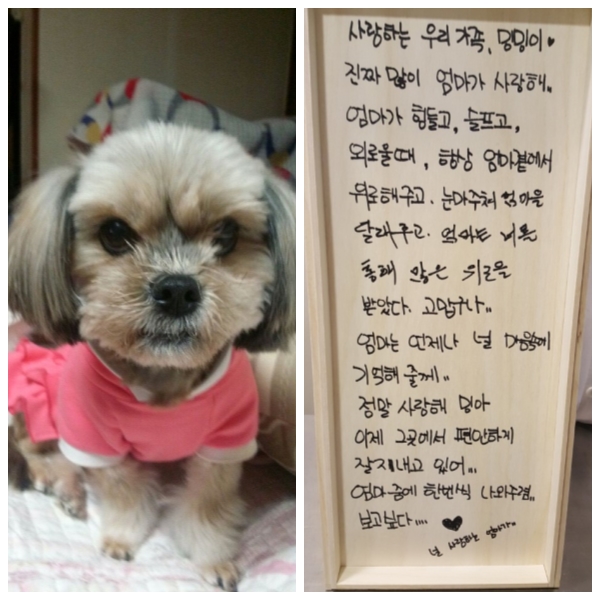 사랑하는 우리 가족, 밍밍이♥
진짜 많이 엄마가 사랑해..
엄마가 힘들고, 슬프고,
외로울때, 항상 엄마곁에서
위로해주고. 눈마주쳐 엄마을
달래주고. 엄마는 너를
통해 많은 위로을
받았다. 고맙구나..
엄마는 언제나 널 마음속에
기억해 줄게..
정말 사랑해 밍아
이제 그곳에서 편안하게
잘지내고 있어...
엄마꿈에 한번씩 나와주렴..
보고싶다.... ♥
널 사랑하는 엄마가..